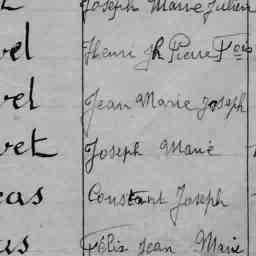 Joseph Marie Julien
vel Henri Jh Pierre Fois
vel Jean Marie Joseph
vet Joseph Marie
cas Constant Joseph
us Félix Jean Marie